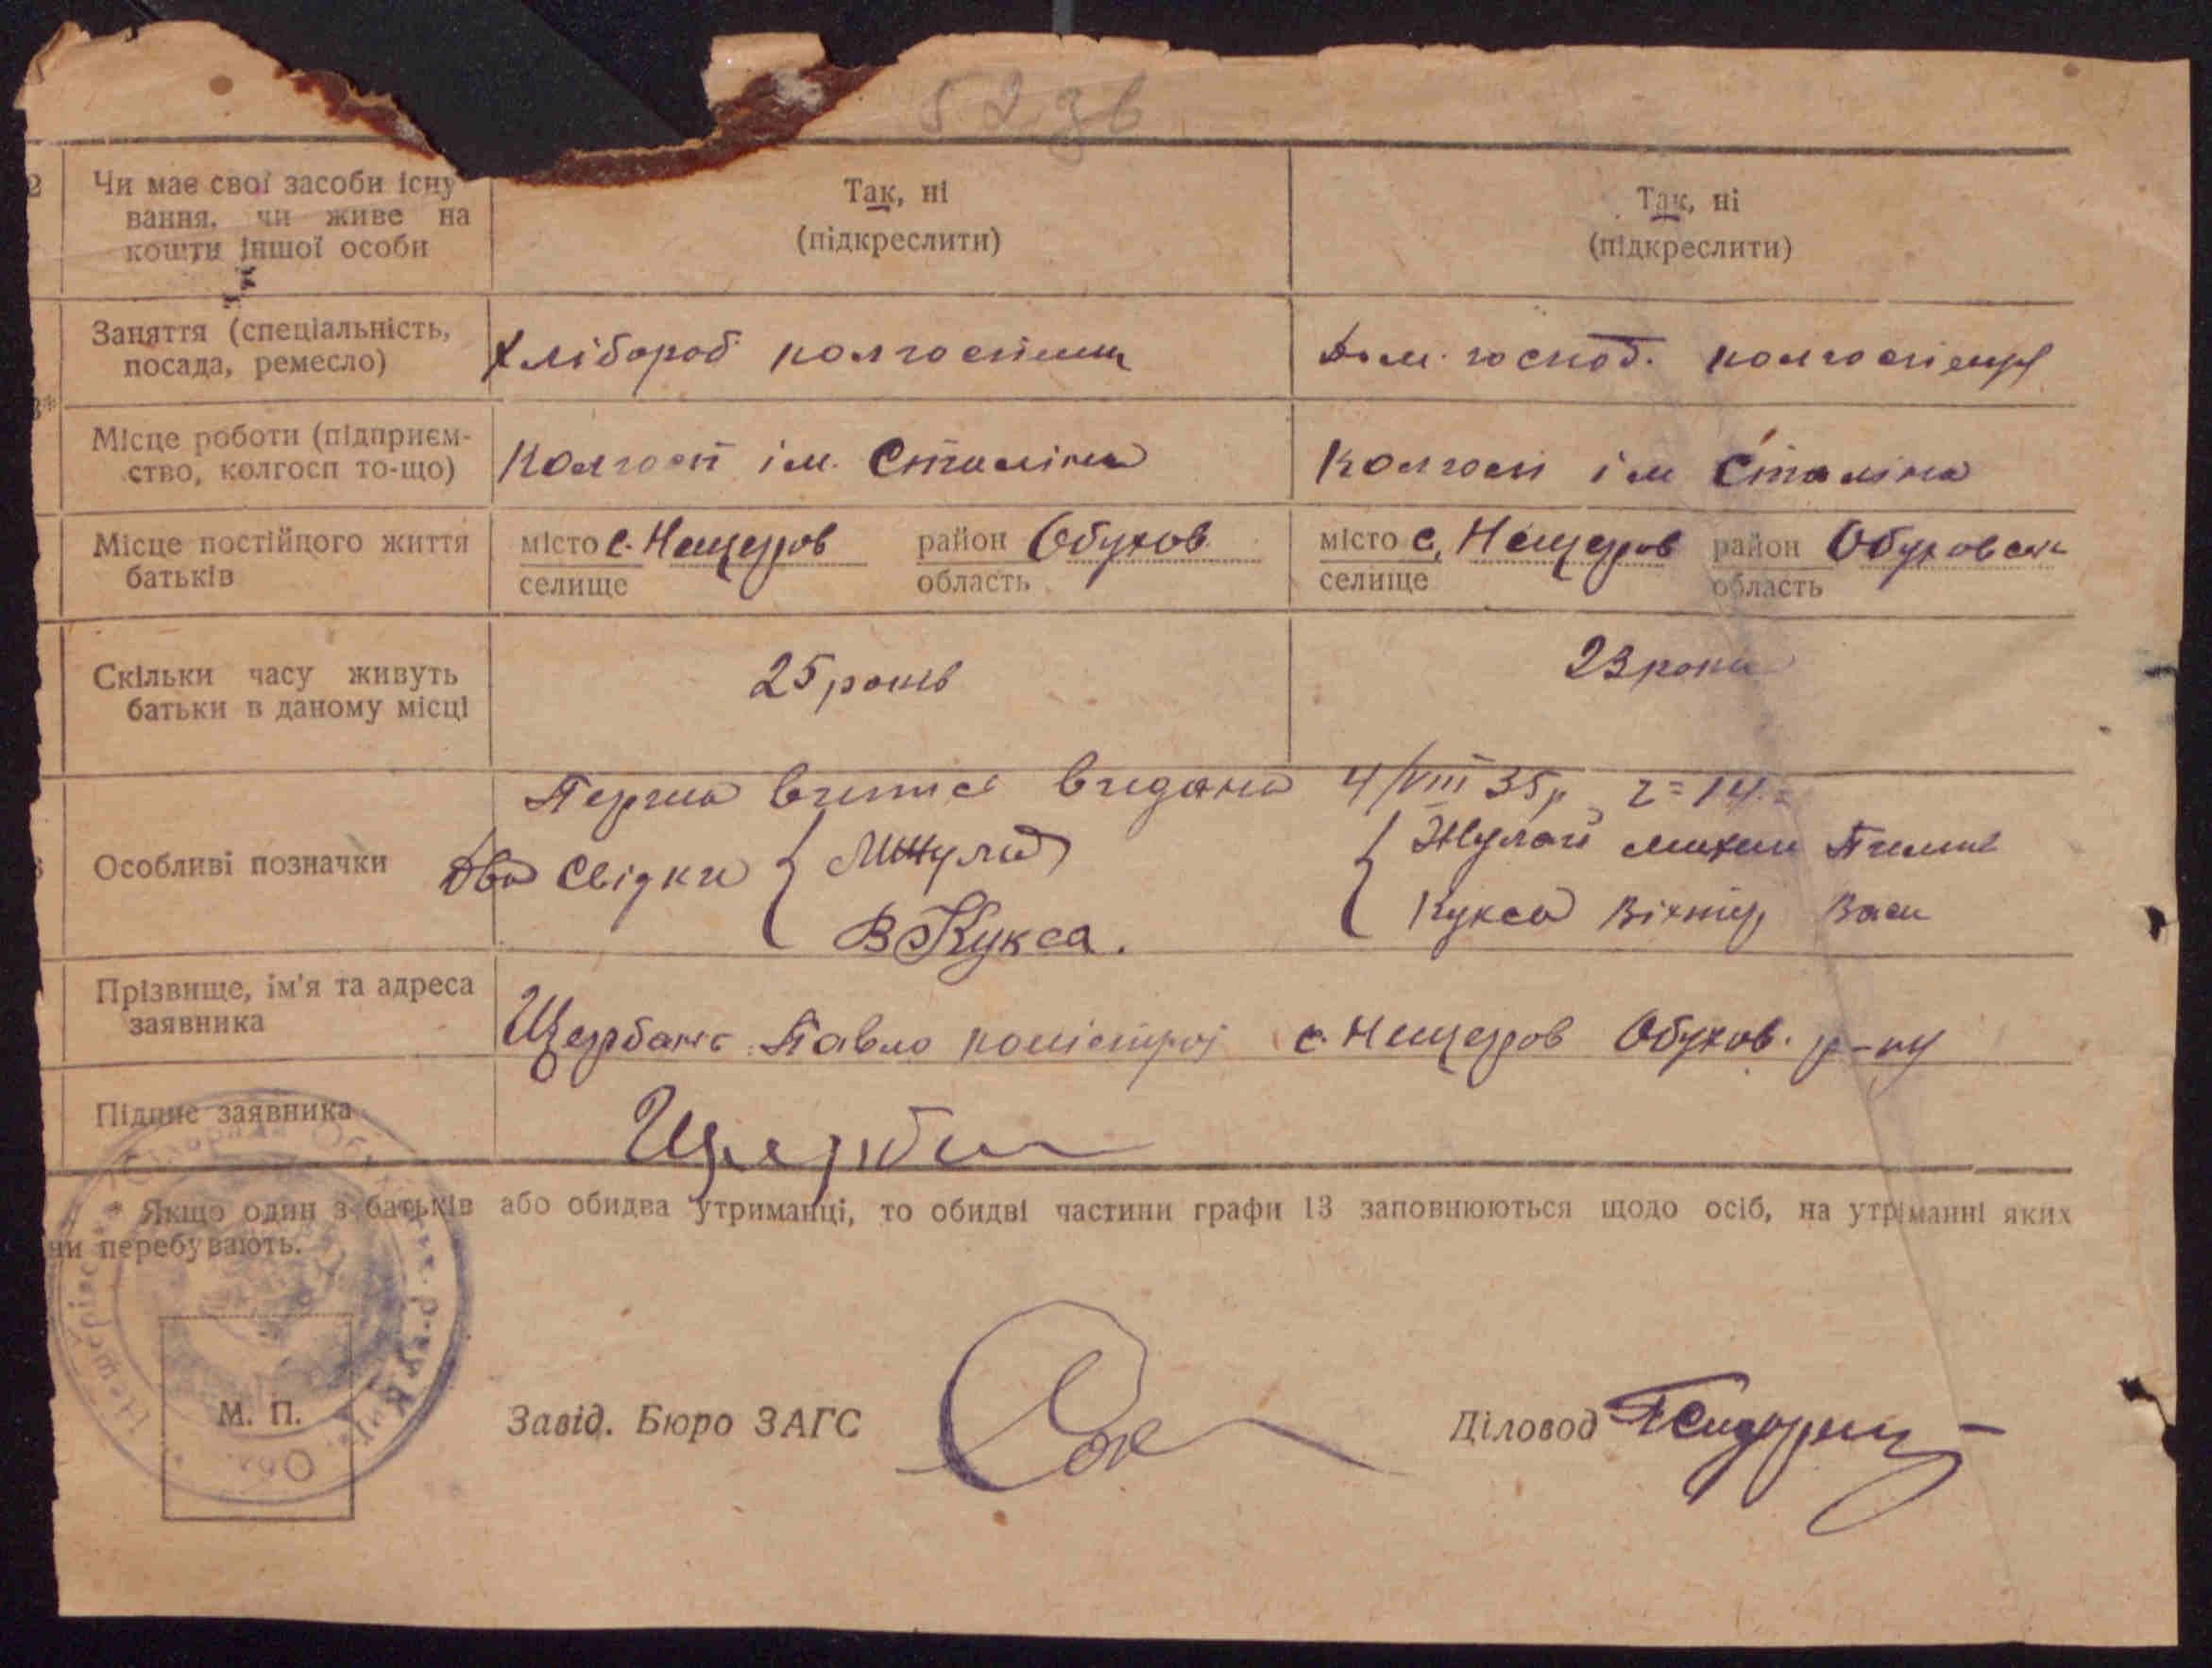 52 зв
2 Чи має свої засоби існу
вання, чи живе на
кошти іншої особи
Так, ні
(підкреслити)
Так, ні
(підкреслити)
Заняття (спеціальність,
посада, ремесло)
Хлібороб колгоспник
Дом. господ. колгоспниця
Місце роботи (підприєм-
ство, колгосп то-що)
Колгосп ім. Сталіна
Колгосп ім Сталіна
Місце постійного життя
батьків
місто с. Нещеров район Обухов
селище область
місто с. Нещеров район Обуховськ
селище область
Скільки часу живуть
батьки в даному місці
25 років
23 роки
Особливі позначки
Перша видана 4/VIII 35р
Два свідки
В Кукса.
Жулай
Кукса Віктор Васи
Прізвище, ім'я та адреса
заявника
Щербань Павло с. Нещеров Обухов. р-ну
Підпис заявника
Щербан
* Якщо один з батьків або обидва утриманці, то обидві частини графи 13 заповнюються щодо осіб, на утріманні яких
ни перебувають.
М. П.
Завід. Бюро ЗАГС
Діловод